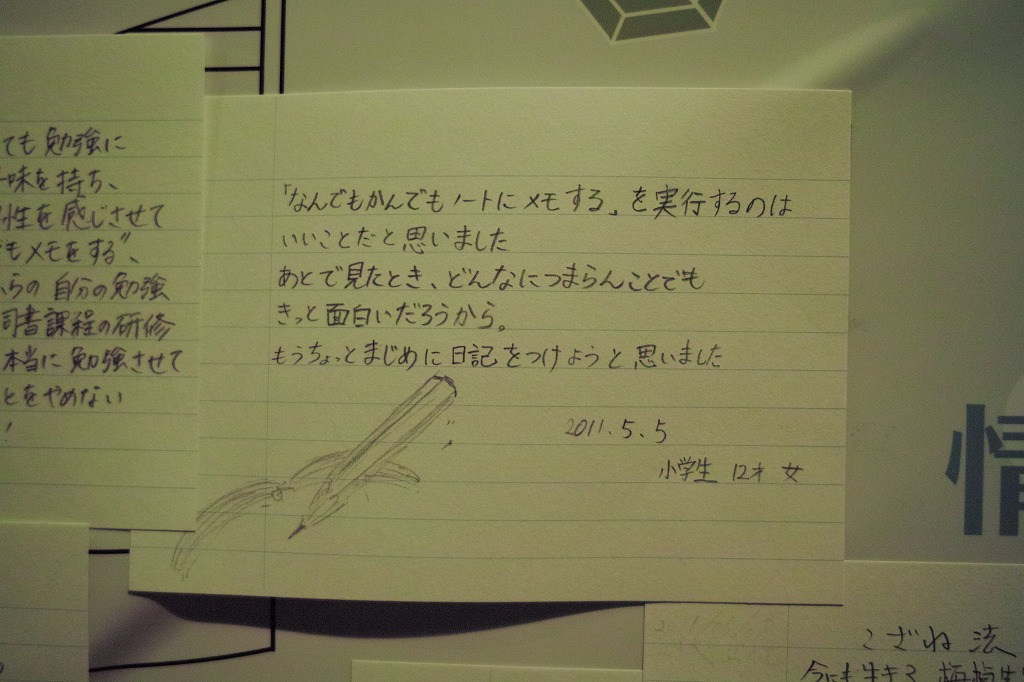 ても勉強に
味を持ち、
性を感じさせて
もメモをする”、
らの自分の勉強
司書課程の研修
本当に勉強させて
とをやめない
！
「なんでもかんでもノートにメモする」を実行するのは
いいことだと思いました
あとで見たとき、どんなにつまらんことでも
きっと面白いだろうから。
もうちょっとまじめに日記をつけようと思いました
2011.5.5
小学生 12才 女
情
こざね法